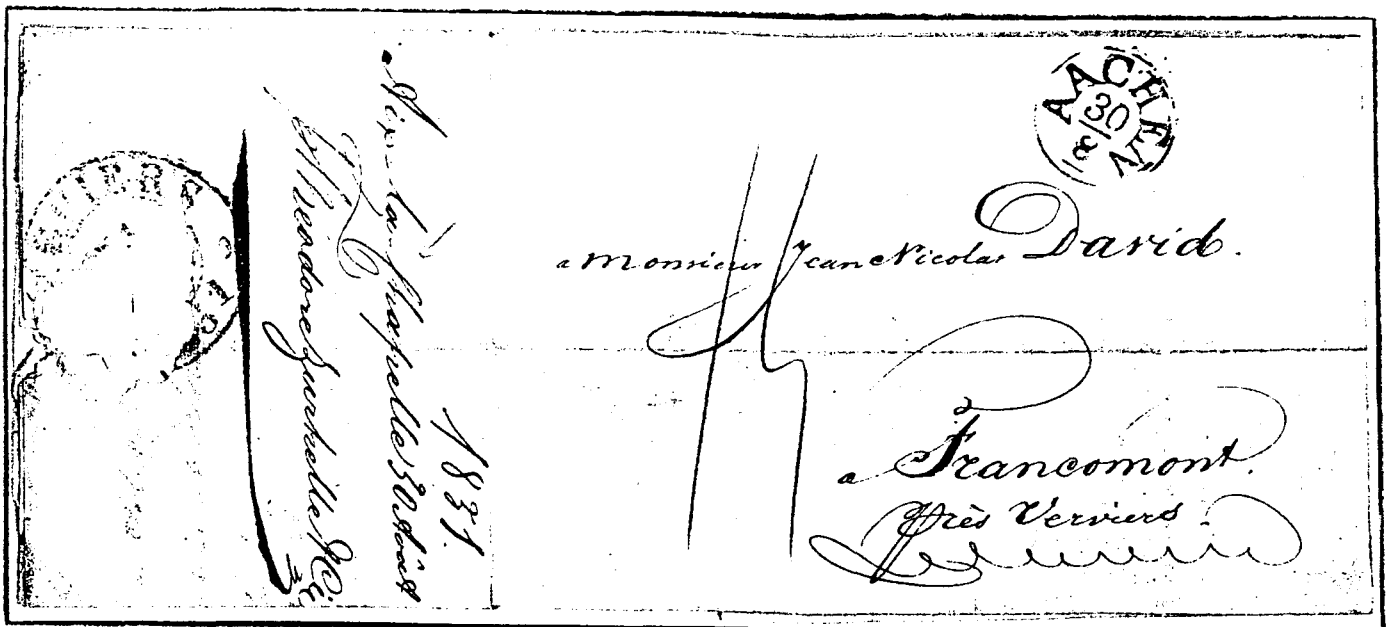 AACHEN
30
8
a monsieur Jean Nicolas David.
a Francomont.
près Verviers.
1831.
Aix la Chapelle 30 Août
Theodore
VERVIERS